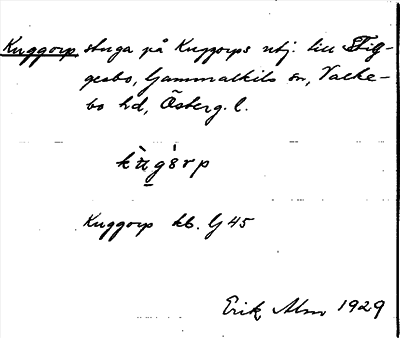 Kuggorp stuga på Kuggorps utj. till Fil-
gesbo, Gammalkils sn, Valke-
bo hd, Österg. l.
Kuggorp kb. G 45
Erik Alm 1929